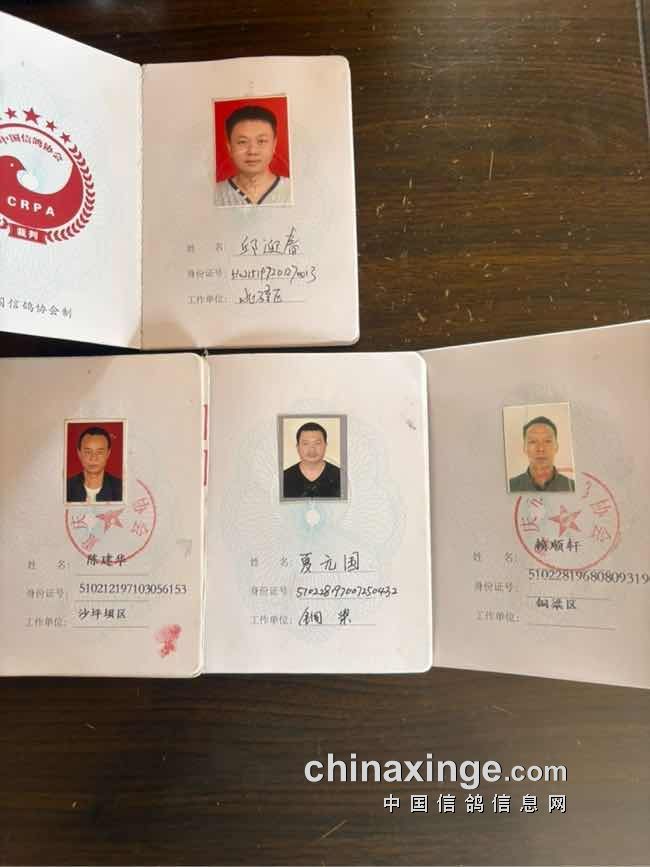 中国信鸽协会
CRPA
裁判
国信鸽协会制
姓 名: 邱迎春
身份证号:
工作单位:
姓 名: 陈建华
身份证号: 510212197103056153
工作单位: 沙坪坝区
姓 名: 夏元国
身份证号: 510228197007250432
工作单位: 铜梁
姓 名: 赖顺轩
身份证号: 51022819680809319
工作单位: 铜梁区
chinaxinge.com
中国信鸽信息网